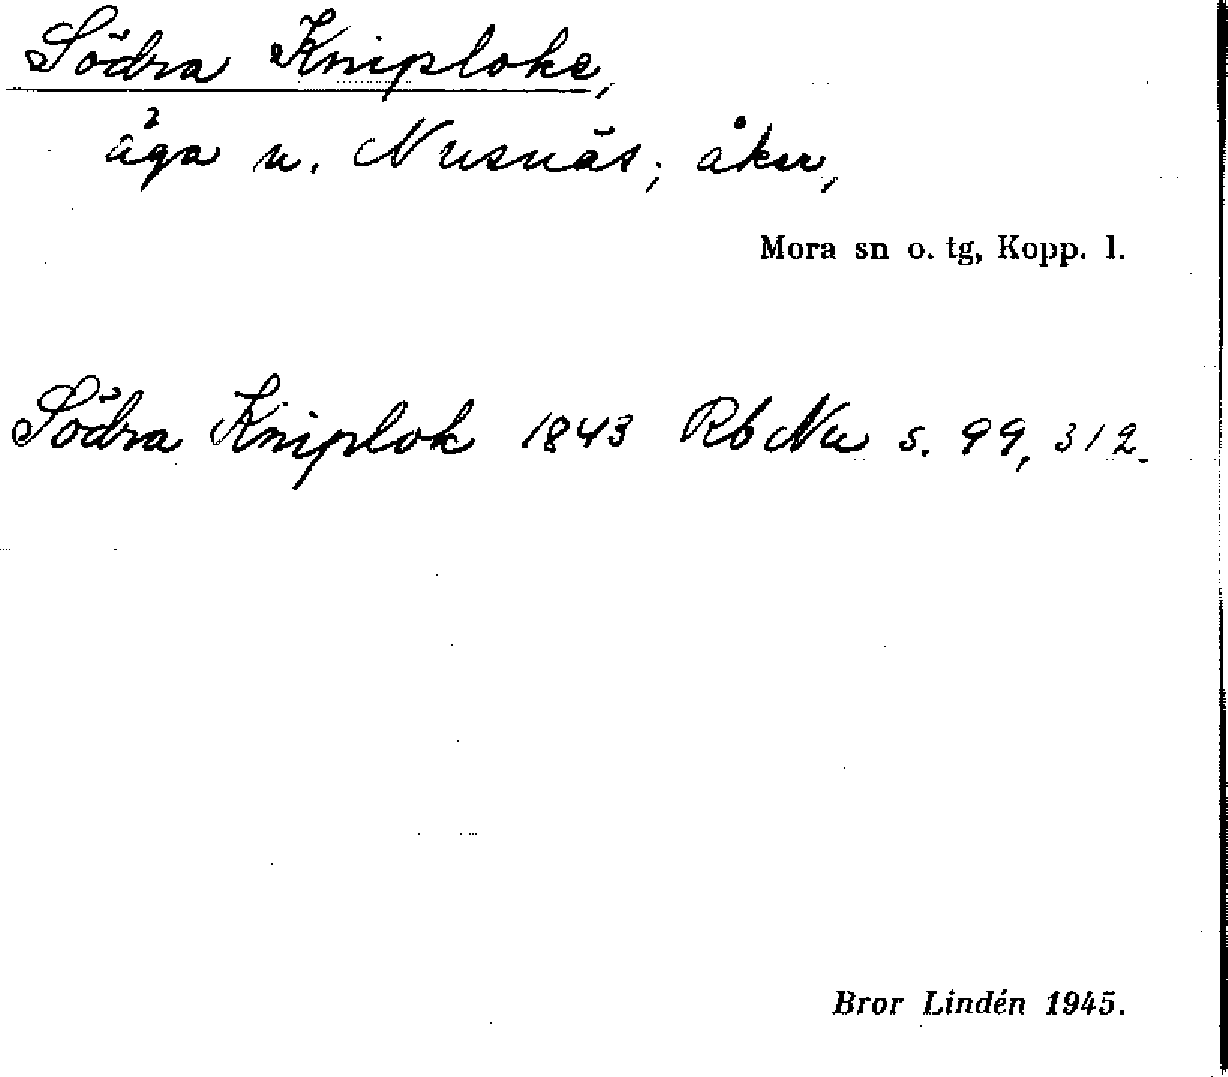 Södra Kniploke,
åga u. Nusnäs; åker,
Mora sn o. tg, Kopp. l.
Södra Kniplok 1843 Rb Nu s. 99, 312.
Bror Lindén 1945.